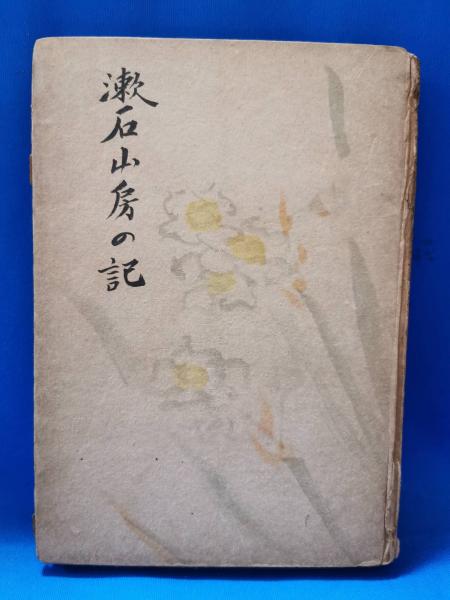 漱石山房の記